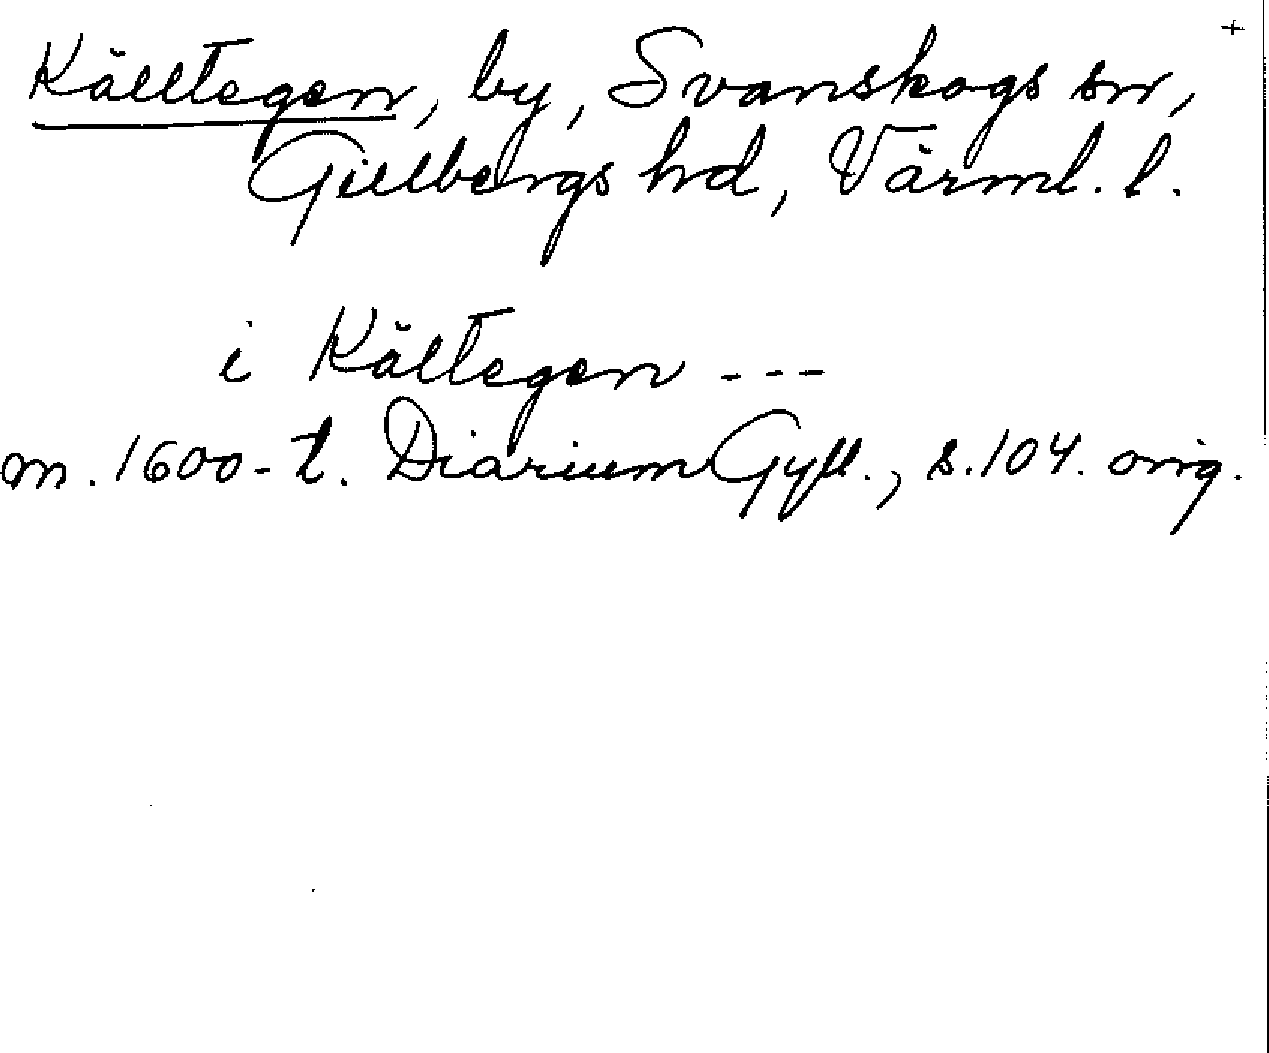 +
Källtegen, by, Svanskogs sn,
Gillbergs hd, Värml. l.
i Källtegen ---
m. 1600-t. Diarium Gyll., s. 104. orig.